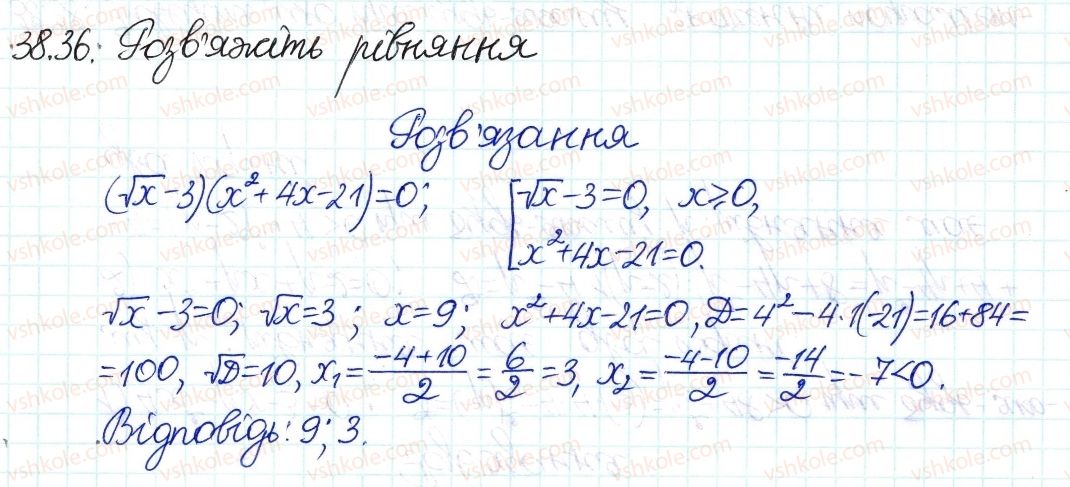 38.36. Розв'яжіть рівняння
Розв'язання
(√x-3)(x²+4x-21)=0; [√x-3=0, x⩾0,
x²+4x-21=0.
√x-3=0; √x=3; x=9; x²+4x-21=0, D=4²-4·1(-21)=16+84=
=100, √D=10, x₁=(-4+10)/2=6/2=3, x₂=(-4-10)/2=-14/2=-7<0.
Відповідь: 9; 3.